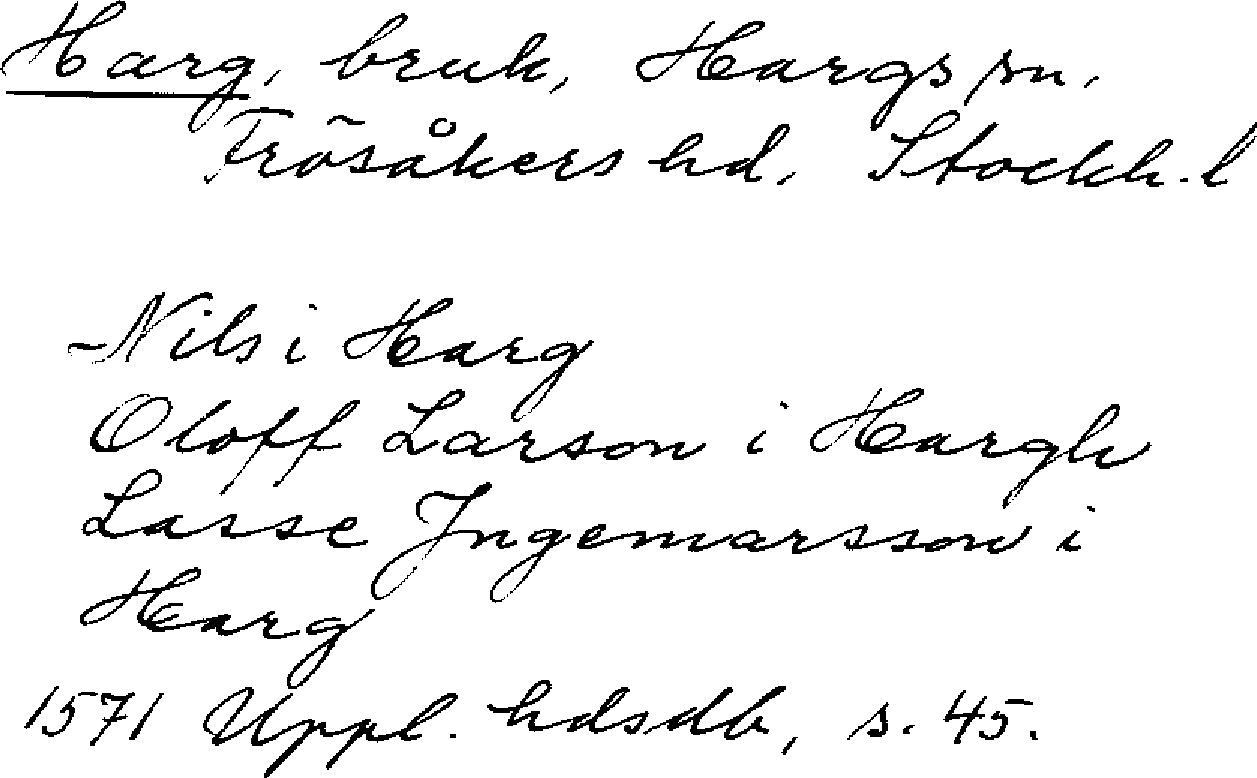 Harg, bruk, Hargs sn,
Frösåkers hd, Stockh. l
-Nils i Harg
Oloff Larson i Hargh
Lasse Jngemarsson i
Harg
1571 Uppl. hdsdb, s. 45.